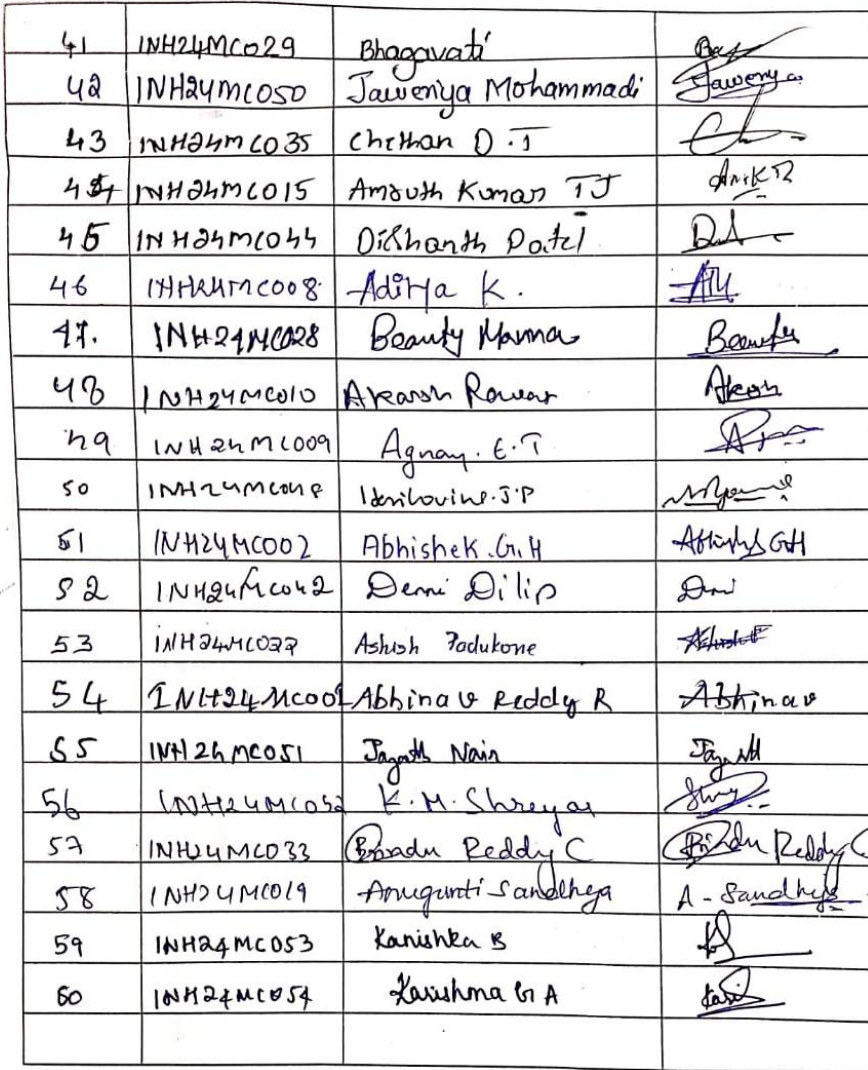 41 1NH24MC029 Bhagavati
42 1NH24MC050 Jaweriya Mohammadi Jaweriya
43 1NH24MC035 Chethan D.J
44 1NH24MC015 Amruth Kumar TJ
45 1NH24MC044 Dikhanth Patel
46 1NH24MC008 Aditya K.
47. 1NH24MC028 Beauty Manna Beauty
48 1NH24MC010 Akarsh Rawar Akarsh
49 1NH24MC009 Agnay. E.T
50 1NH24MC048 J.P
51 1NH24MC002 Abhishek.G.H Abhishek GH
52 1NH24MC042 Demi Dilip Demi
53 1NH24MC022 Ashish Padukone Ashish
54 1NH24MC001 Abhinav Reddy R Abhinav
55 1NH24MC051 Jagath Nair Jagath
56 1NH24MC052 K.M.Shreyas
57 1NH24MC033 Brindu Reddy C Brindu Reddy C
58 1NH24MC019 Anuganti Sandheya A - Sandhya
59 1NH24MC053 Kanishka B
60 1NH24MC054 Karishma G A